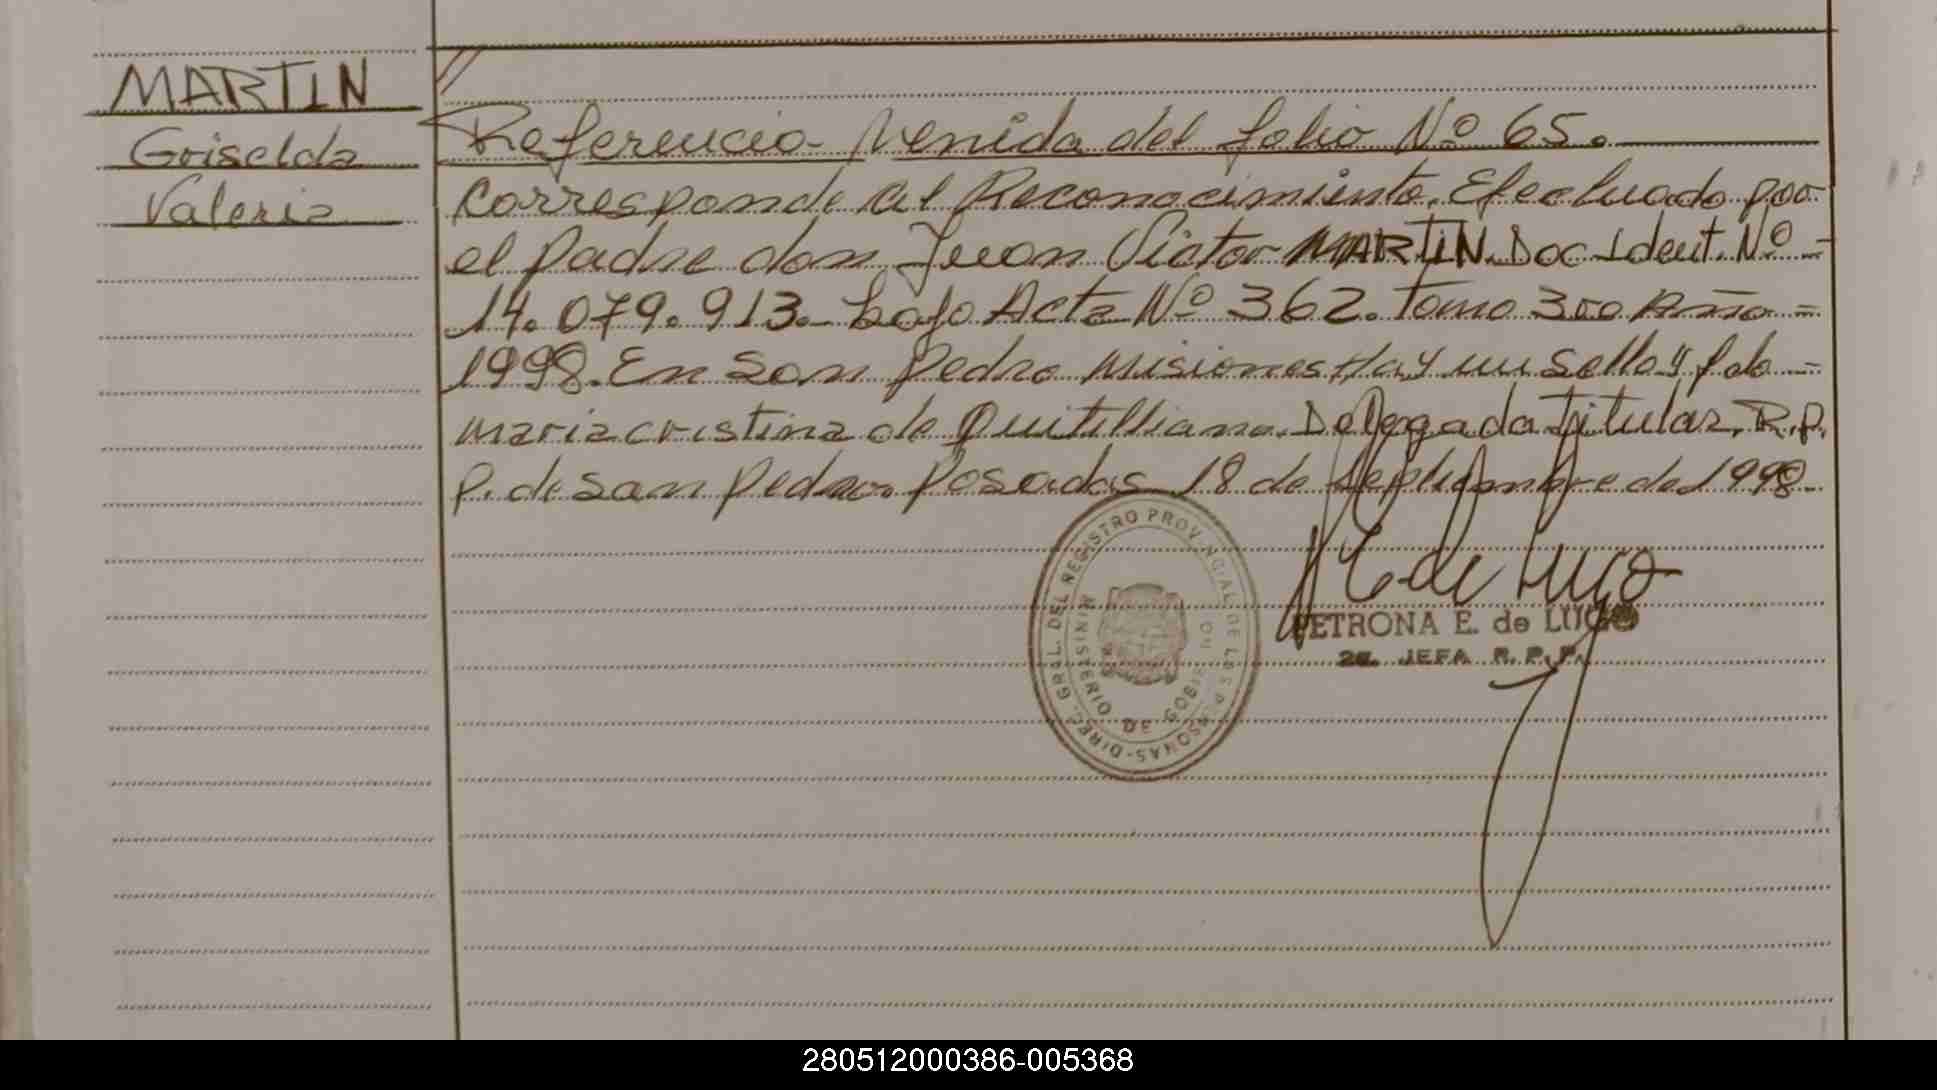 MARTIN
Griselda
Valeria
Referencia- Venida del folio Nº 65.
Corresponde al Reconocimiento. Efectuado por
el padre don Juan Victor MARTIN. Doc Ident. Nº -
14.079.913.- bajo Acta Nº 362. Tomo 3ro Año =
1998. En San Pedro Misiones. Hay un sello y fdo =
Maria Cristina de Quitilliano. Delegada Titular. R.P.
P. de San Pedro. Posadas 18 de Septiembre de 1998.
DIREC. GRAL. DEL REGISTRO PROVINCIAL DE LAS PERSONAS-
MINISTERIO DE GOBIERNO
E de Lugo
PETRONA E. de LUGO
2a. JEFA R.P.P.
280512000386-005368